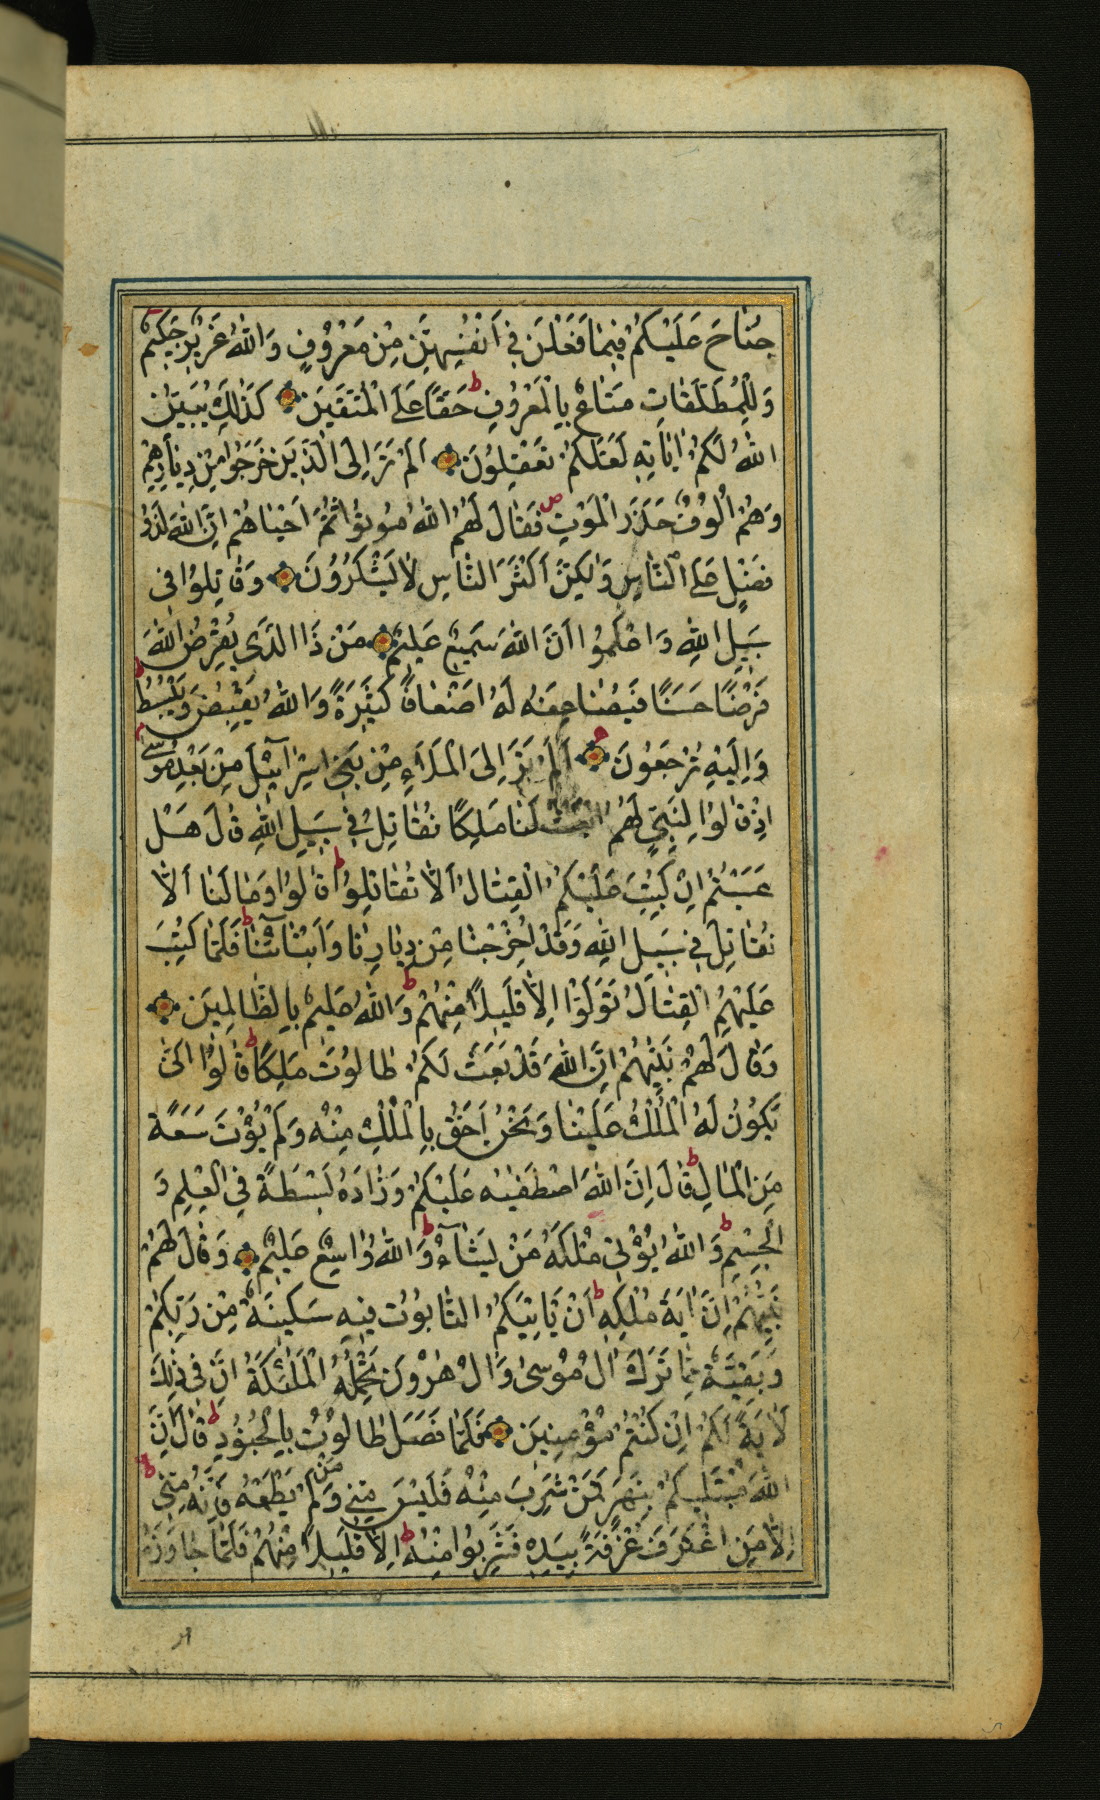 جُنَاحَ عَلَيْكُمْ فِيمَا فَعَلْنَ فِي أَنْفُسِهِنَّ مِنْ مَعْرُوفٍ وَاللّٰهُ عَزِيزٌ حَكِيمٌ
وَلِلْمُطَلَّقَاتِ مَتَاعٌ بِالْمَعْرُوفِ ط حَقًّا عَلَى الْمُتَّقِينَ كَذٰلِكَ يُبَيِّنُ
اللّٰهُ لَكُمْ اٰيَاتِهِ لَعَلَّكُمْ تَعْقِلُونَ اَلَمْ تَرَ اِلَى الَّذِينَ خَرَجُوا مِنْ دِيَارِهِمْ
وَهُمْ اُلُوفٌ حَذَرَ الْمَوْتِ ص فَقَالَ لَهُمُ اللّٰهُ مُوتُوا ثُمَّ اَحْيَاهُمْ اِنَّ اللّٰهَ لَذُو
فَضْلٍ عَلَى النَّاسِ وَلٰكِنَّ اَكْثَرَ النَّاسِ لَا يَشْكُرُونَ وَقَاتِلُوا فِي
سَبِيلِ اللّٰهِ وَاعْلَمُوا اَنَّ اللّٰهَ سَمِيعٌ عَلِيمٌ مَنْ ذَا الَّذِي يُقْرِضُ اللّٰهَ
قَرْضًا حَسَنًا فَيُضَاعِفَهُ لَهُ اَضْعَافًا كَثِيرَةً وَاللّٰهُ يَقْبِضُ وَيَبْسُطُ ط
وَاِلَيْهِ تُرْجَعُونَ اَلَمْ تَرَ اِلَى الْمَلَاءِ مِنْ بَنِي اِسْرَآئِيلَ مِنْ بَعْدِ مُوسٰى م
اِذْ قَالُوا لِنَبِيٍّ لَهُمُ ابْعَثْ لَنَا مَلِكًا نُقَاتِلْ فِي سَبِيلِ اللّٰهِ قَالَ هَلْ
عَسَيْتُمْ اِنْ كُتِبَ عَلَيْكُمُ الْقِتَالُ اَلَّا تُقَاتِلُوا ط قَالُوا وَمَا لَنَا اَلَّا
نُقَاتِلَ فِي سَبِيلِ اللّٰهِ وَقَدْ اُخْرِجْنَا مِنْ دِيَارِنَا وَاَبْنَآئِنَا ط فَلَمَّا كُتِبَ
عَلَيْهِمُ الْقِتَالُ تَوَلَّوْا اِلَّا قَلِيلًا مِنْهُمْ ط وَاللّٰهُ عَلِيمٌ بِالظَّالِمِينَ
وَقَالَ لَهُمْ نَبِيُّهُمْ اِنَّ اللّٰهَ قَدْ بَعَثَ لَكُمْ طَالُوتَ مَلِكًا ط قَالُوا اَنّٰى
يَكُونُ لَهُ الْمُلْكُ عَلَيْنَا وَنَحْنُ اَحَقُّ بِالْمُلْكِ مِنْهُ وَلَمْ يُؤْتَ سَعَةً
مِنَ الْمَالِ ط قَالَ اِنَّ اللّٰهَ اصْطَفٰيهُ عَلَيْكُمْ وَزَادَهُ بَسْطَةً فِي الْعِلْمِ وَ
الْجِسْمِ ط وَاللّٰهُ يُؤْتِي مُلْكَهُ مَنْ يَشَآءُ ط وَاللّٰهُ وَاسِعٌ عَلِيمٌ وَقَالَ لَهُمْ
نَبِيُّهُمْ اِنَّ اٰيَةَ مُلْكِهِ ط اَنْ يَأْتِيَكُمُ التَّابُوتُ فِيهِ سَكِينَةٌ مِنْ رَبِّكُمْ
وَبَقِيَّةٌ مِمَّا تَرَكَ اٰلُ مُوسٰى وَاٰلُ هٰرُونَ تَحْمِلُهُ الْمَلٰئِكَةُ اِنَّ فِي ذٰلِكَ
لَاٰيَةً لَكُمْ اِنْ كُنْتُمْ مُؤْمِنِينَ فَلَمَّا فَصَلَ طَالُوتُ بِالْجُنُودِ ط قَالَ اِنَّ
اللّٰهَ مُبْتَلِيكُمْ بِنَهَرٍ فَمَنْ شَرِبَ مِنْهُ فَلَيْسَ مِنِّي وَمَنْ لَمْ يَطْعَمْهُ فَاِنَّهُ مِنِّي
اِلَّا مَنِ اغْتَرَفَ غُرْفَةً بِيَدِهِ فَشَرِبُوا مِنْهُ ط اِلَّا قَلِيلًا مِنْهُمْ فَلَمَّا جَاوَزَهُ